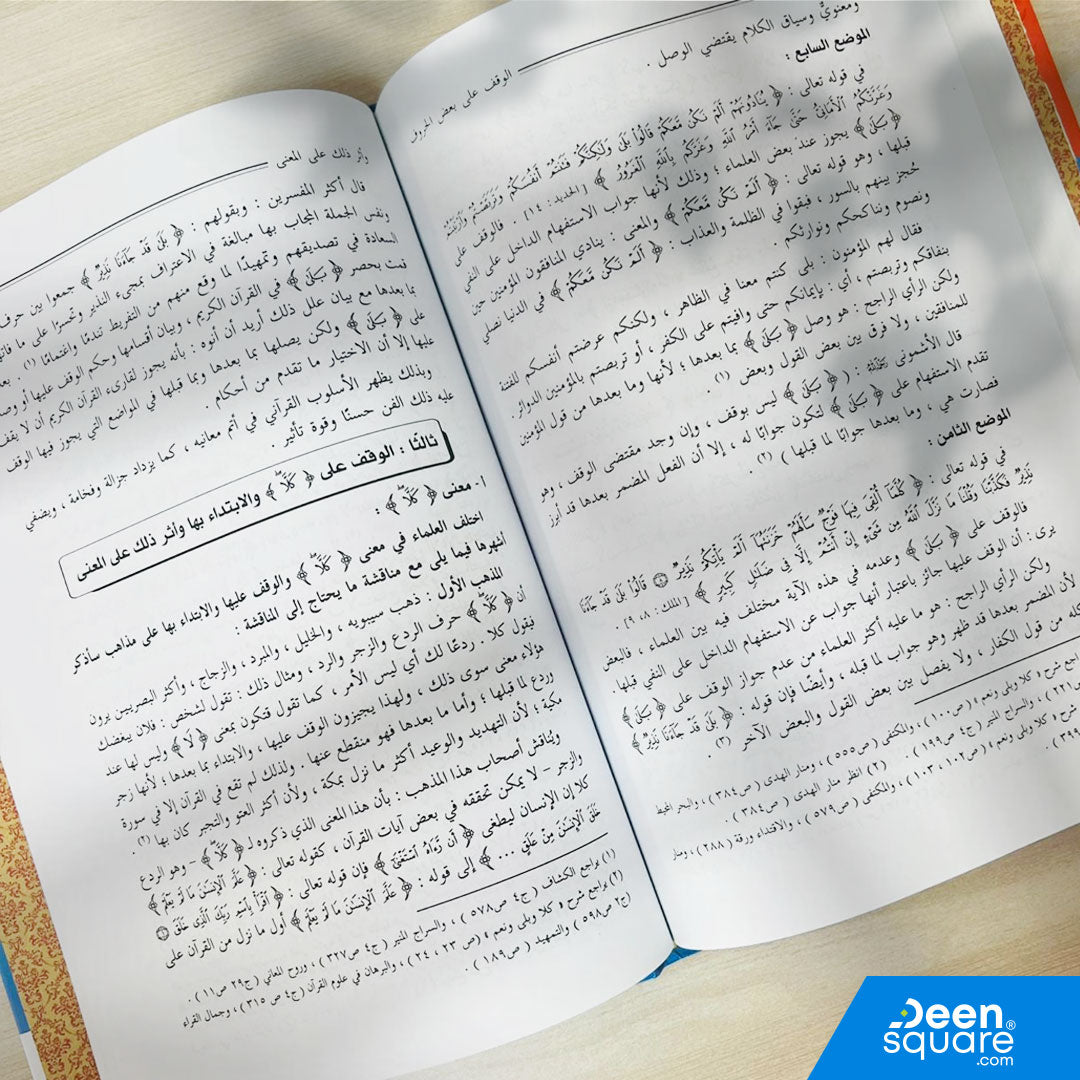 الوقف على بعض الحروف
ومعنويٌّ وسياق الكلام يقتضي الوصل .
الموضع السابع :
في قوله تعالى : ﴿ يُنَادُونَهُمْ أَلَمْ نَكُن مَّعَكُمْ قَالُوا۟ بَلَىٰ وَلَٰكِنَّكُمْ فَتَنتُمْ أَنفُسَكُمْ وَتَرَبَّصْتُمْ وَٱرْتَبْتُمْ
وَغَرَّتْكُمُ ٱلْأَمَانِىُّ حَتَّىٰ جَآءَ أَمْرُ ٱللَّهِ وَغَرَّكُم بِٱللَّهِ ٱلْغَرُورُ ﴾ [الحديد: ١٤] . فالوقف على
﴿ بَلَىٰ ﴾ يجوز عند بعض العلماء ؛ وذلك لأنها جواب الاستفهام الداخل على النفي
قبلها ، وهو قوله تعالى : ﴿ أَلَمْ نَكُن مَّعَكُمْ ﴾ والمعنى : ينادي المنافقون المؤمنين حين
حُجز بينهم بالسور ، فبقوا في الظلمة والعذاب : ﴿ أَلَمْ نَكُن مَّعَكُمْ ﴾ في الدنيا نصلي
ونصوم ونناكحكم ونوارثكم .
فقال لهم المؤمنون : بلى كنتم معنا في الظاهر ، ولكنكم عرضتم أنفسكم للفتنة
بنفاقكم وتربصتم ، أي : بإيمانكم حتى وافيتم على الكفر ، أو تربصتم بالمؤمنين الدوائر.
ولكن الرأي الراجح : هو وصل ﴿ بَلَىٰ ﴾ بما بعدها ؛ لأنها وما بعدها من قول المؤمنين
للمنافقين ، ولا فرق بين بعض القول وبعض (١) .
قال الأشموني : ( ﴿ بَلَىٰ ﴾ ليس بوقف ، وإن وجد مقتضى الوقف ، وهو
تقدم الاستفهام على ﴿ بَلَىٰ ﴾ لتكون جوابًا له ، إلا أن الفعل المضمر بعدها قد أبرز
فصارت هي ، وما بعدها جوابًا لما قبلها ) (٢) .
الموضع الثامن :
في قوله تعالى : ﴿ كُلَّمَآ أُلْقِىَ فِيهَا فَوْجٌ سَأَلَهُمْ خَزَنَتُهَآ أَلَمْ يَأْتِكُمْ نَذِيرٌ ۝ قَالُوا۟ بَلَىٰ قَدْ جَآءَنَا
نَذِيرٌ فَكَذَّبْنَا وَقُلْنَا مَا نَزَّلَ ٱللَّهُ مِن شَىْءٍ إِنْ أَنتُمْ إِلَّا فِى ضَلَٰلٍ كَبِيرٍ ﴾ [الملك: ٨، ٩] .
فالوقف على ﴿ بَلَىٰ ﴾ وعدمه في هذه الآية مختلف فيه بين العلماء ، فالبعض
يرى : أن الوقف عليها جائز باعتبار أنها جواب عن الاستفهام الداخل على النفي قبلها.
ولكن الرأي الراجح : هو ما عليه أكثر العلماء من عدم جواز الوقف على ﴿ بَلَىٰ ﴾
لأن المضمر بعدها قد ظهر وهو جواب لما قبله ، وأيضًا فإن قوله : ﴿ بَلَىٰ قَدْ جَآءَنَا نَذِيرٌ ﴾
كله من قول الكفار ، ولا يفصل بين بعض القول والبعض الآخر (٣) .
كلا وبلى ونعم » (ص١٠٠) ، والمكتفى (ص٥٥٥) ، ومنار الهدى (ص٣٨٤) ، والبحر المحيط
والسراج المنير (ج٤ ص١٩٩) . (٢) انظر منار الهدى (ص٣٨٤) .
كلا وبلى ونعم » (ص١٠٢، ١٠٣) ، والمكتفى (ص٥٧٩) ، والاقتداء ورقة (٢٨٨) ، ومنار
وأثر ذلك على المعنى
قال أكثر المفسرين : وبقولهم : ﴿ بَلَىٰ قَدْ جَآءَنَا نَذِيرٌ ﴾ جمعوا بين حرف
ونفس الجملة المجاب بها مبالغة في الاعتراف بمجيء النذير وتحسرًا على ما فاتهم
السعادة في تصديقهم وتمهيدًا لما وقع منهم من التفريط تندمًا واغتمامًا (١) .
قمت بحصر ﴿ بَلَىٰ ﴾ في القرآن الكريم ، وبيان أقسامها وحكم الوقف عليها أو
بما بعدها مع بيان علل ذلك أريد أن أنوه : بأنه يجوز لقارىء القرآن الكريم أن لا يقف
على ﴿ بَلَىٰ ﴾ ولكن يصلها بما بعدها وبما قبلها في المواضع التي يجوز فيها الوقف
عليها إلا أن الاختيار ما تقدم من أحكام .
وبذلك يظهر الأسلوب القرآني في أتم معانيه ، كما يزداد جزالة وفخامة ، ويضفي
عليه ذلك الفن حسنًا وقوة تأثير .
ثالثًا : الوقف على ﴿ كَلَّا ﴾ والابتداء بها وأثر ذلك على المعنى
١- معنى ﴿ كَلَّا ﴾ :
اختلف العلماء في معنى ﴿ كَلَّا ﴾ والوقف عليها والابتداء بها على مذاهب سأذكر
أشهرها فيما يلي مع مناقشة ما يحتاج إلى المناقشة :
المذهب الأول : ذهب سيبويه ، والخليل ، والمبرد ، والزجاج ، وأكثر البصريين يرون
أن ﴿ كَلَّا ﴾ حرف الردع والزجر والرد ، ومثال ذلك : تقول لشخص : فلان يبغضك
فيقول كلا . ردعًا لك أي ليس الأمر ، كما تقول فتكون بمعنى ﴿ لَا ﴾ وليس لها عند
هؤلاء معنى سوى ذلك ، ولهذا يجيزون الوقف عليها ، والابتداء بما بعدها ؛ لأنها زجر
وردع لما قبلها ؛ وأما ما بعدها فهو منقطع عنها . ولذلك لم تقع في القرآن إلا في سورة
مكية ؛ لأن التهديد والوعيد أكثر ما نزل بمكة ، ولأن أكثر العتو والتجبر كان بها (٢) .
ويُناقش أصحاب هذا المذهب : بأن هذا المعنى الذي ذكروه لـ ﴿ كَلَّا ﴾ – وهو الردع
والزجر – لا يمكن تحققه في بعض آيات القرآن ، كقوله تعالى : ﴿ عَلَّمَ ٱلْإِنسَٰنَ مَا لَمْ يَعْلَمْ ﴾
كلا إن الإنسان ليطغى ﴿ أَن رَّءَاهُ ٱسْتَغْنَىٰٓ ﴾ فإن قوله تعالى : ﴿ ٱقْرَأْ بِٱسْمِ رَبِّكَ ٱلَّذِى خَلَقَ ۝
خَلَقَ ٱلْإِنسَٰنَ مِنْ عَلَقٍ ... ﴾ إلى قوله : ﴿ عَلَّمَ ٱلْإِنسَٰنَ مَا لَمْ يَعْلَمْ ﴾ أول ما نزل من القرآن على
(١) يراجع الكشاف (ج٤ ص٥٧٨) ، والسراج المنير (ج٤ ص٣٢٧) ، وروح المعاني (ج٢٩ ص١١) .
(٢) يراجع شرح « كلا وبلى ونعم » (ص ٢٣ ، ٢٤) ، والبرهان في علوم القرآن (ج٤ ص ٣١٥) ، وجمال القراء
(ج٢ ص٥٩٨) والتمهيد (ص١٨٩) .
Deen
square®
.com